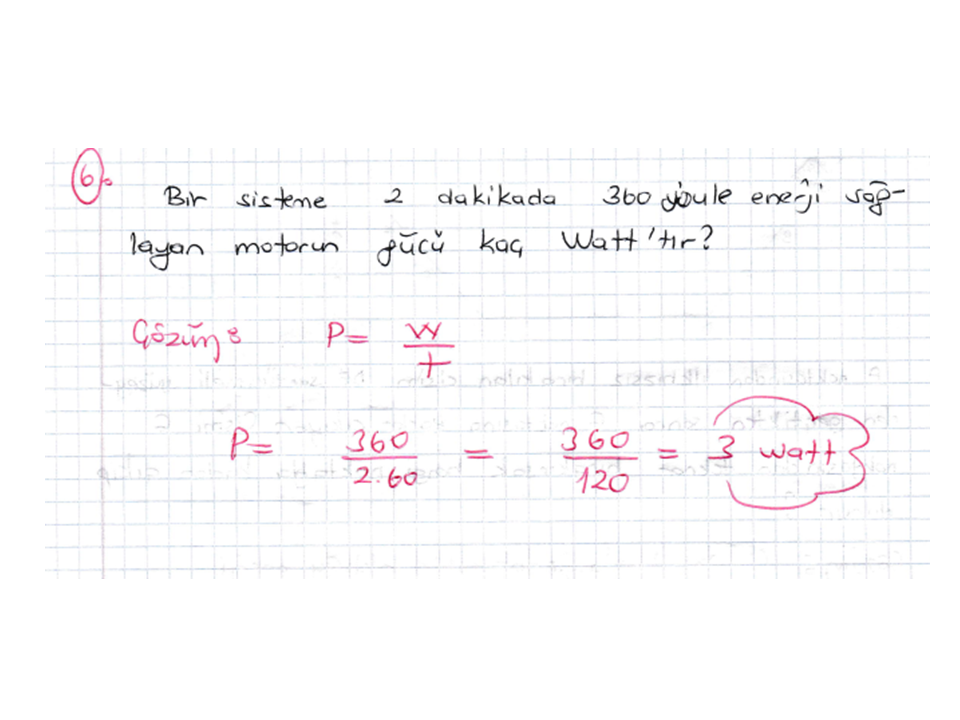 6.
Bir sisteme 2 dakikada 360 joule enerji sağ-
layan motorun gücü kaç Watt'tır?
Çözüm: P= W/t
P= 360/2.60 = 360/120 = 3 watt